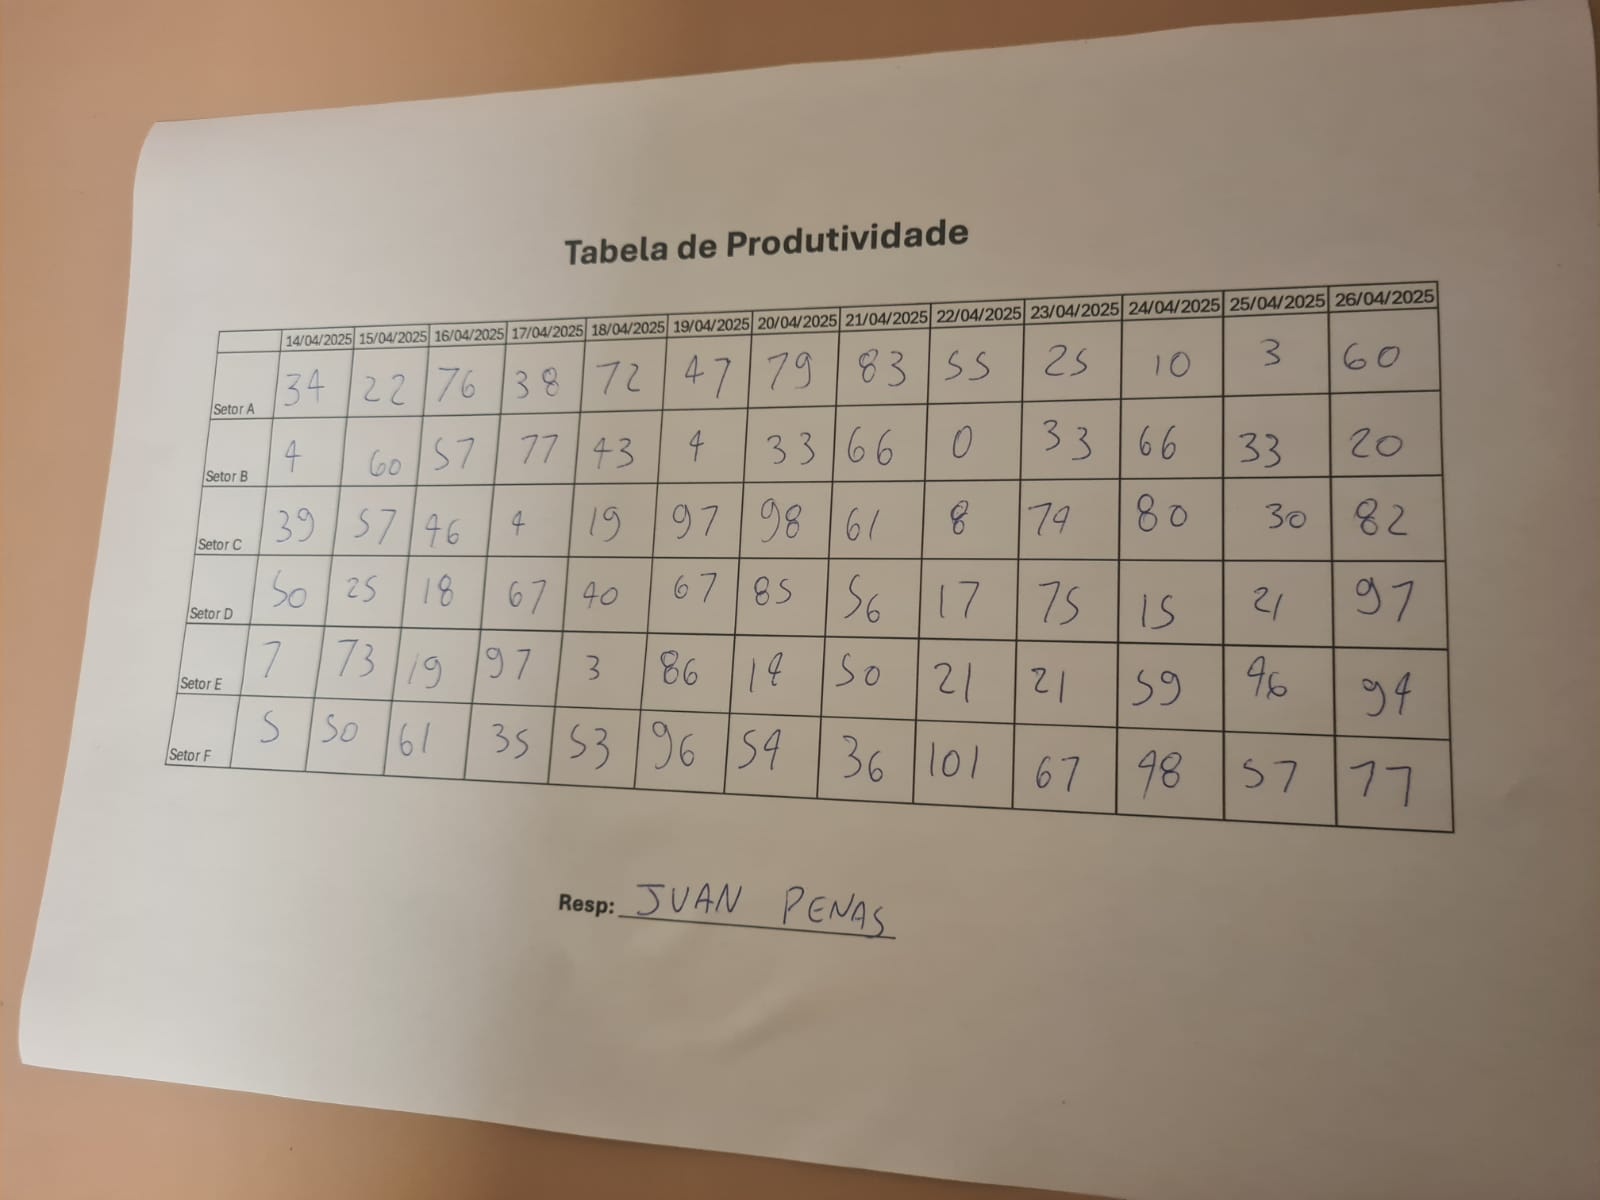 Tabela de Produtividade
14/04/2025 15/04/2025 16/04/2025 17/04/2025 18/04/2025 19/04/2025 20/04/2025 21/04/2025 22/04/2025 23/04/2025 24/04/2025 25/04/2025 26/04/2025
Setor A 34 22 76 38 72 47 79 83 55 25 10 3 60
Setor B 4 60 57 77 43 4 33 66 0 33 66 33 20
Setor C 39 57 46 4 19 97 98 61 8 74 80 30 82
Setor D 50 25 18 67 40 67 85 56 17 75 15 21 97
Setor E 7 73 19 97 3 86 14 50 21 21 59 46 94
Setor F 5 50 61 35 53 96 54 36 101 67 98 57 77
Resp: JUAN PENAS